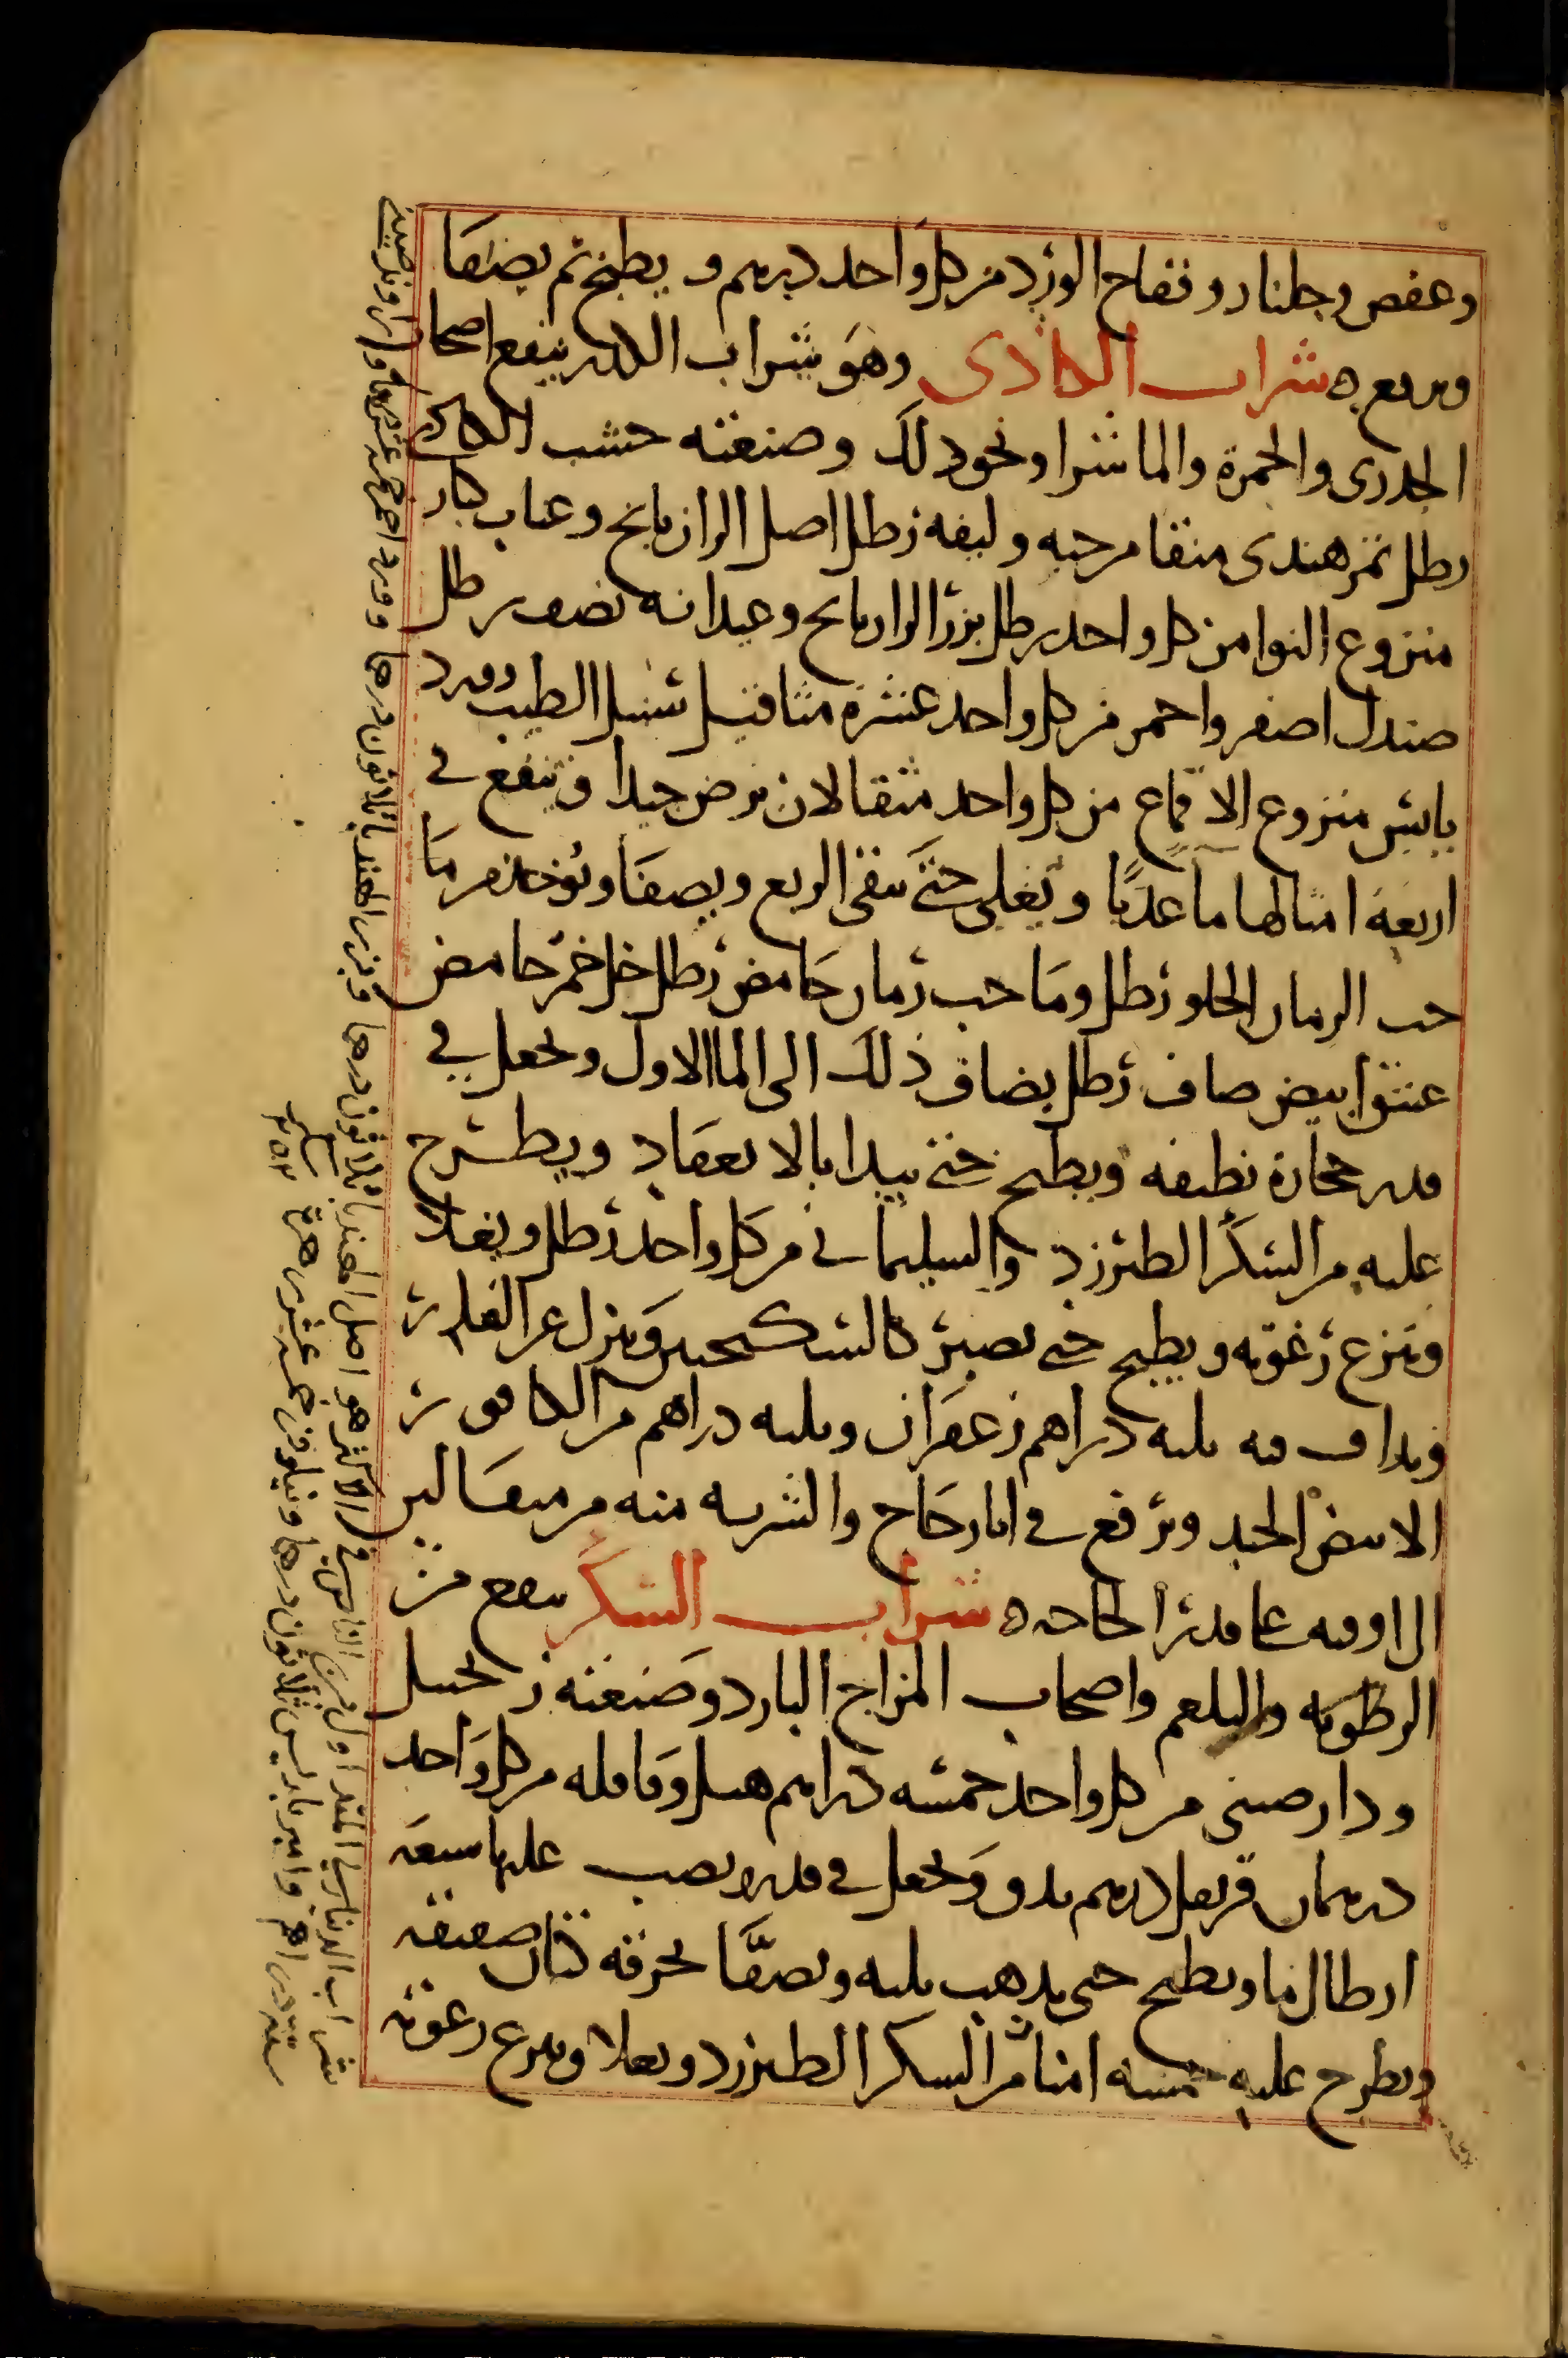 وعفص وجلنار وتفاح الورد من كل واحد درهم ويطبخ ثم يصفا
ويرفع ه شراب الكادى وهو شراب الكدر ينفع اصحاب
الجدرى والحمرة والماشرا ونحو ذلك وصنعته خشب الكادى
رطل تمر هندى منقا من حبه وليفه رطل اصل الرازيانج وعناب كبار
منزوع النوا من كل واحد رطل بزر الرازيانج وعيدانه نصف رطل
صندل اصفر واحمر من كل واحد عشرة مثاقيل سنبل الطيب وورد
يابس منزوع الاقماع من كل واحد مثقالان يرض جيدا وينقع في
اربعة امثالها ما عذبا ويغلى حتى يبقى الربع ويصفا ويؤخذ من ما
حب الرمان الحلو رطل وما حب رمان حامض رطل خل خمر حامض
عتيق ابيض صاف رطل يضاف ذلك الى الما الاول ويجعل في
قدر حجارة نظيفه ويطبخ حتى يبدا بالانعقاد ويطرح
عليه من السكر الطبرزد والسليمانى من كل واحد رطل ويغلا
وينزع رغوته ويطبخ حتى يصير كالسكنجبين وينزل عن النار
ويداف فيه ثلثه دراهم زعفران وثلثه دراهم من الكافور
الابيض الجيد ويرفع في انا زجاج والشربه منه من مثقالين
الى اوقيه على قدر الحاجه ه شراب السكر ينفع من
الرطوبه والبلغم واصحاب المزاج البارد وصنعته زنجبيل
ودارصينى من كل واحد خمسه دراهم هيل وقاقله من كل واحد
درهمان قرنفل درهم يدق ويجعل في قدر ويصب عليها سبعة
ارطال ما ويطبخ حتى يذهب ثلثه ويصفا بخرقه كتان صفيقه
ويطرح عليه خمسه امنا من السكر الطبرزد ويغلا وينزع رغوته
شراب الدينارى المتداول بين الناس في الاكثر هو اصل الهندبا ثلاثون درهما وبزر الهندبا ثلاثون درهما وورد احمر خمسة عشر درهما
ستة دراهم وامير باريس ثلاثون درهما ونيلوفر خمسة عشر درهما
سكر